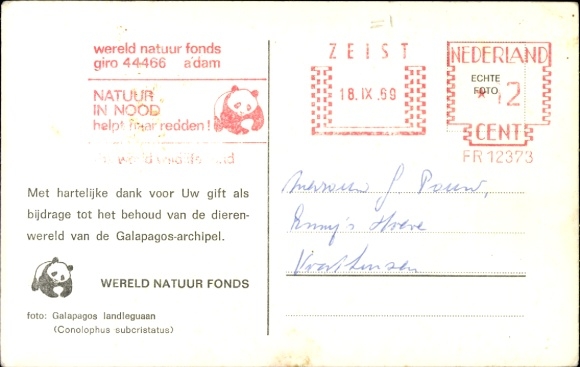 wereld natuur fonds
giro 44466 a'dam
NATUUR
IN NOOD
help haar redden!
the world wildlife fund
ZEIST
18.IX.69
NEDERLAND
ECHTE
FOTO
12
CENT
FR 12373
Met hartelijke dank voor Uw gift als
bijdrage tot het behoud van de dieren-
wereld van de Galapagos-archipel.
WERELD NATUUR FONDS
foto: Galapagos landleguaan
(Conolophus subcristatus)
Mevrouw J Pouw,
Enny's Hoeve